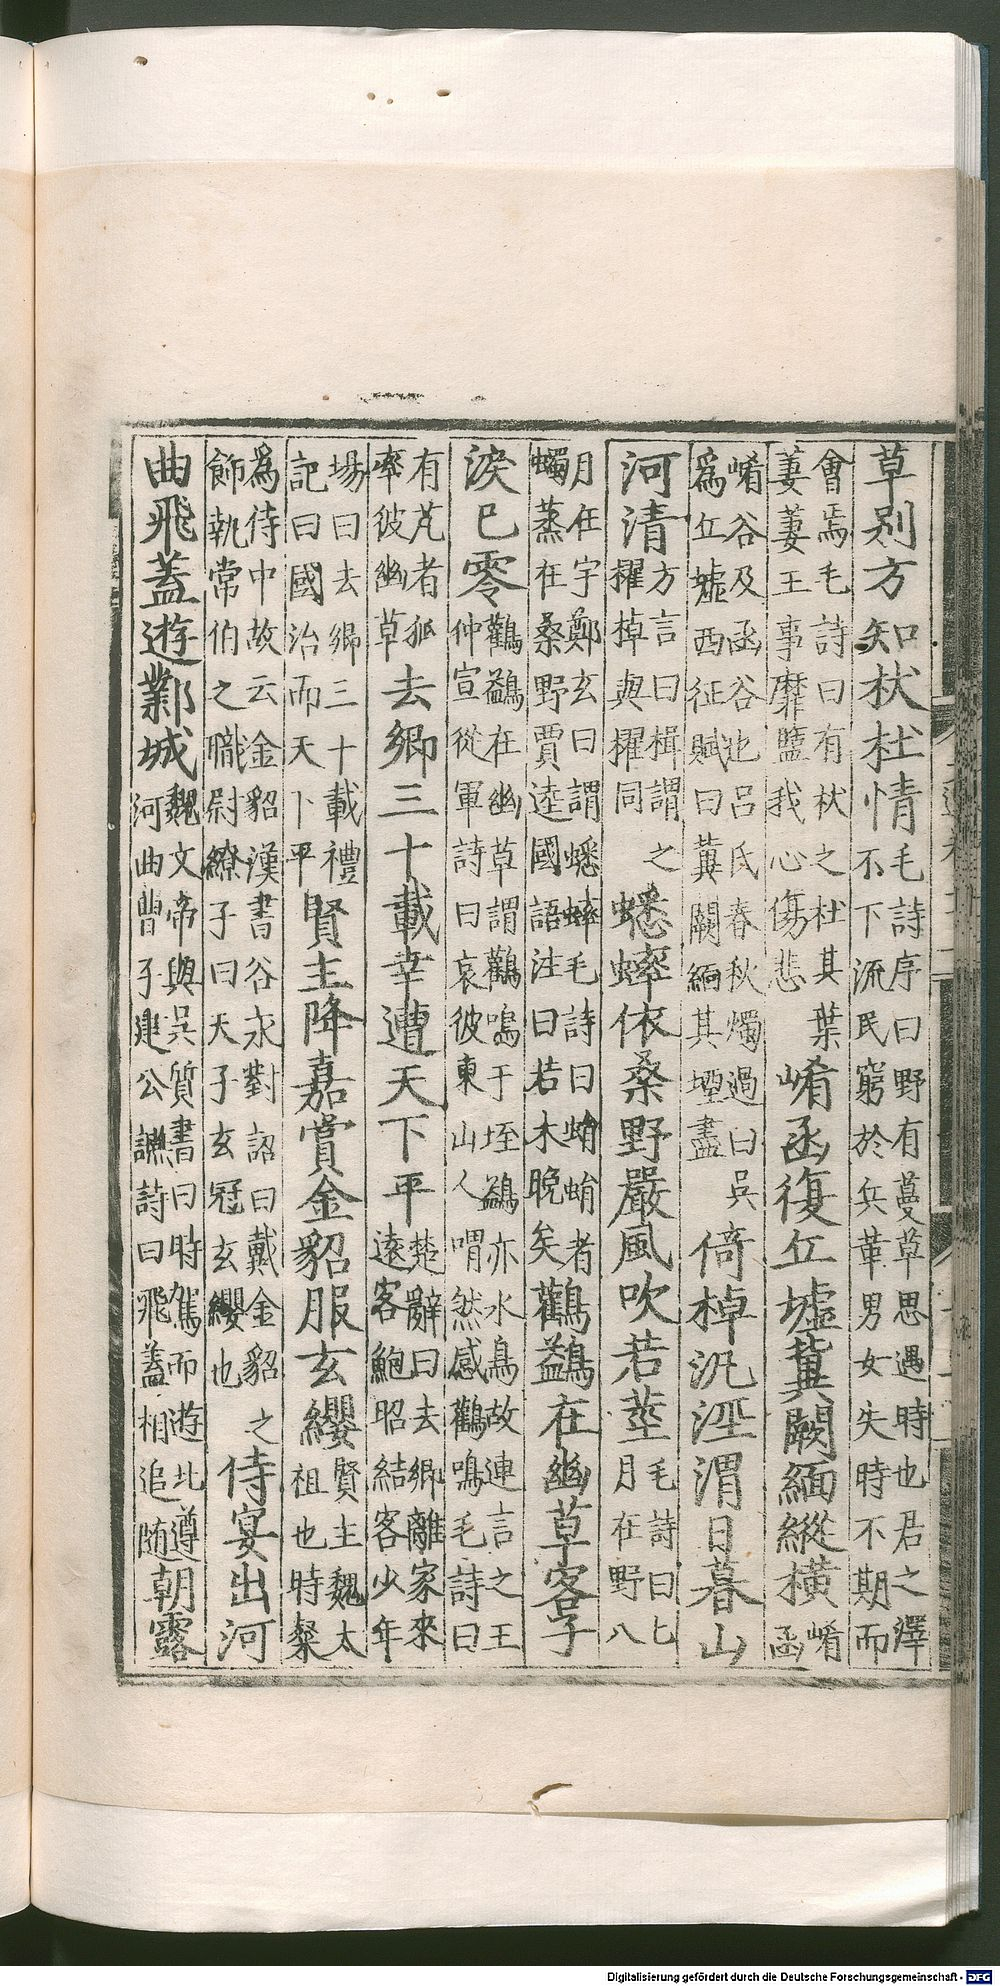 草别方知杕杜情毛詩序曰野有蔓草思遇時也君之澤不下流民窮於兵革男女失時不期而
會焉毛詩曰有杕之杜其葉萋萋王事靡盬我心傷悲崤函復丘墟冀闕緬縱橫崤函
崤谷及函谷也呂氏春秋燭過曰吳爲丘墟西征賦曰冀闕緬其堙盡倚棹汎涇渭日暮山
河清方言曰楫謂之擢棹與擢同蟋蟀依桑野嚴風吹若莖毛詩曰七月在野八
月在宇鄭玄曰謂蟋蟀毛詩曰蜎蜎者蠋蒸在桑野賈逵國語注曰若木晚矣鸛鷁在幽草客子
淚已零鸛鷁在幽草謂鸛鳴于垤鷁亦水鳥故連言之王仲宣從軍詩曰哀彼東山人喟然感鸛鳴毛詩曰
有芃者狐率彼幽草去鄉三十載幸遭天下平楚辭曰去鄉離家來遠客鮑昭結客少年
場曰去鄉三十載禮記曰國治而天下平賢主降嘉賞金貂服玄纓賢主魏太祖也時粲
爲侍中故云金貂漢書谷永對詔曰戴金貂之飾執常伯之職尉繚子曰天子玄冠玄纓也侍宴出河
曲飛蓋遊鄴城魏文帝與吳質書曰時駕而遊北遵河曲曹子建公讌詩曰飛蓋相追随朝露
Digitalisierung gefördert durch die Deutsche Forschungsgemeinschaft - DFG